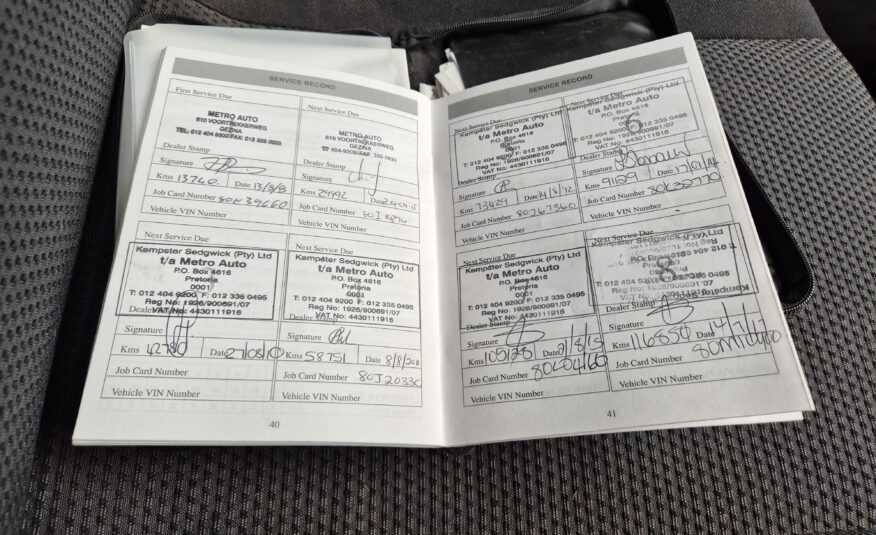 SERVICE RECORD
First Service Due
METRO AUTO
610 VOORTREKKERWEG
GEZINA
TEL: 012 404 9200 FAX: 012 335 0935
Dealer Stamp
Signature
Kms 13760 Date 13/8/8
Job Card Number 80H39660
Vehicle VIN Number
Next Service Due
METRO AUTO
610 VOORTREKKERWEG
GEZINA
Dealer Stamp
Signature
Kms 29992 Date
Job Card Number
Vehicle VIN Number
Next Service Due
Kempster Sedgwick (Pty) Ltd
t/a Metro Auto
P.O. Box 4616
Pretoria
0001
T: 012 404 9200 F: 012 335 0495
Reg No: 1926/900691/07
VAT No: 4430111916
Dealer
Signature
Kms 42780 Date 27/08/10
Job Card Number
Vehicle VIN Number
Next Service Due
Kempster Sedgwick (Pty) Ltd
t/a Metro Auto
P.O. Box 4616
Pretoria
0001
T: 012 404 9200 F: 012 335 0495
Reg No: 1926/900691/07
VAT No: 4430111916
Dealer Stamp
Signature
Kms 58751 Date 8/8/2011
Job Card Number 80J2033C
Vehicle VIN Number
40
SERVICE RECORD
Next Service Due
Kempster Sedgwick (Pty) Ltd
t/a Metro Auto
P.O. Box 4616
Pretoria
0001
T: 012 404 9200 F: 012 335 0495
Reg No: 1926/900691/07
VAT No: 4430111916
Dealer Stamp
Signature
Kms 73429 Date 14/8/12
Job Card Number 80J67360
Vehicle VIN Number
Next Service Due
Kempster Sedgwick (Pty) Ltd
t/a Metro Auto
P.O. Box 4616
Pretoria
6
Dealer Stamp
Signature
Kms 91129 Date
Job Card Number 80K32770
Vehicle VIN Number
Next Service Due
Kempster Sedgwick (Pty) Ltd
t/a Metro Auto
P.O. Box 4616
Pretoria
0001
T: 012 404 9200 F: 012 335 0495
Reg No: 1926/900691/07
VAT No: 4430111916
Dealer Stamp
Signature
Kms 105128 Date
Job Card Number
Vehicle VIN Number
Next Service Due
8
Dealer Stamp
Signature
Kms 116850 Date
Job Card Number
Vehicle VIN Number
41